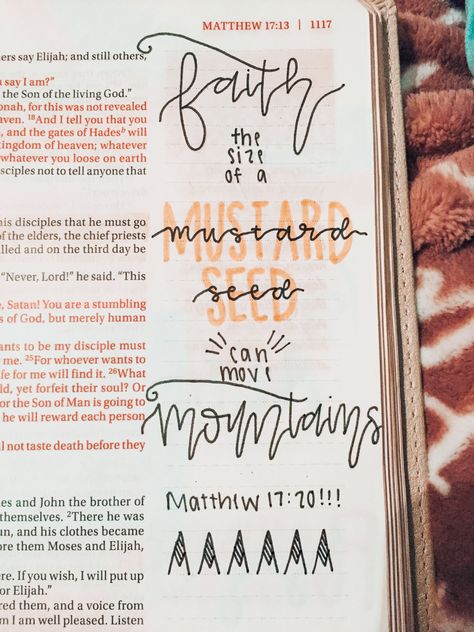 MATTHEW 17:13 | 1117
ers say Elijah; and still others,
say I am?"
the Son of the living God."
onah, for this was not revealed
aven. 18And I tell you that you
, and the gates of Hadesb will
ingdom of heaven; whatever
whatever you loose on earth
sciples not to tell anyone that
his disciples that he must go
of the elders, the chief priests
lled and on the third day be
"Never, Lord!" he said. "This
, Satan! You are a stumbling
s of God, but merely human
ants to be my disciple must
me. 25For whoever wants to
fe for me will find it. 26What
ld, yet forfeit their soul? Or
or the Son of Man is going to
he will reward each person
ll not taste death before they
es and John the brother of
themselves. 2There he was
un, and his clothes became
ore them Moses and Elijah,
ere. If you wish, I will put up
or Elijah."
red them, and a voice from
I am well pleased. Listen
faith
the
size
of a
MUSTARD
mustard
SEED
seed
can
move
mountains
Matthew 17:20!!!